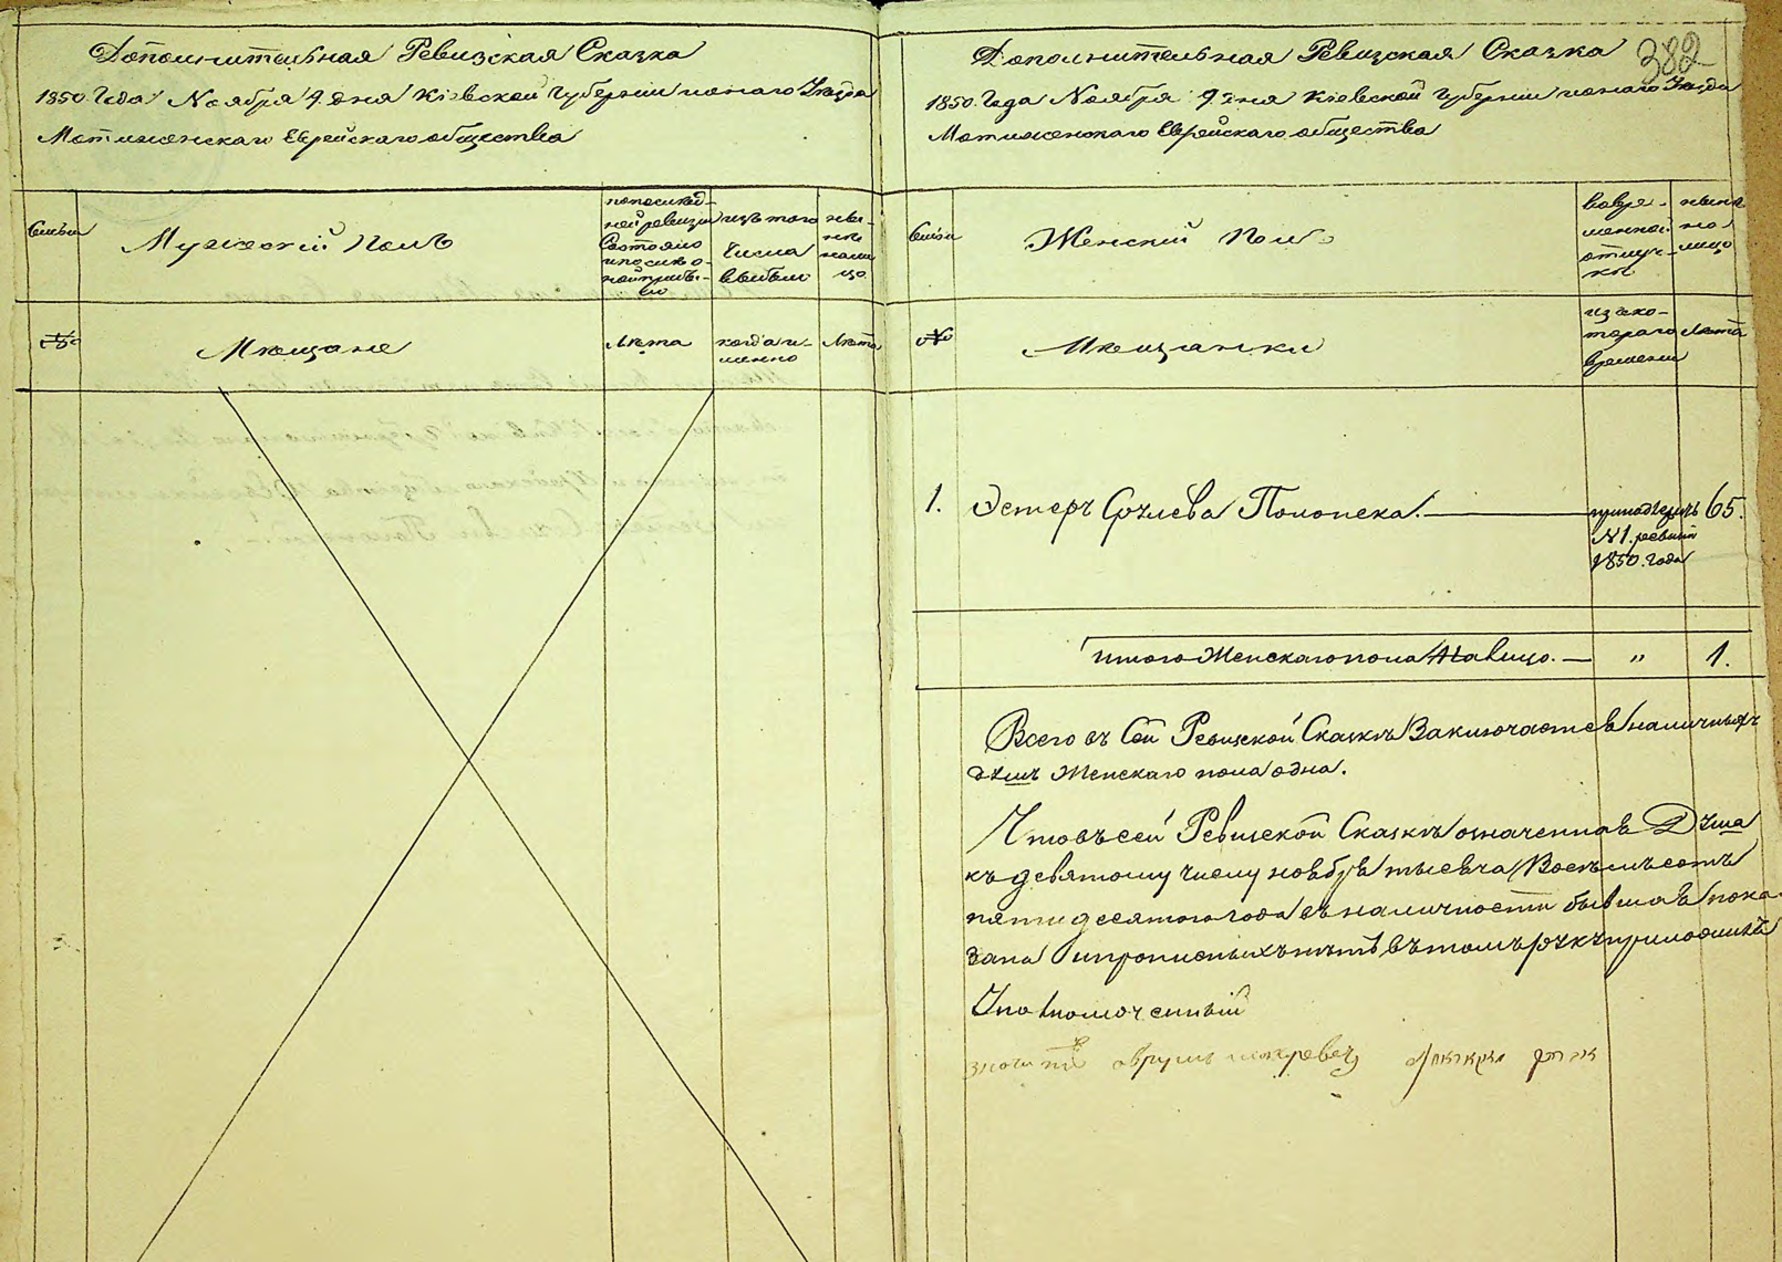 Дополнительная Ревизская Сказка
1850. Года Ноября 9. дня Кіевской Губерніи и онаго Уезда
Мотыженскаго Еврейскаго общества
Семьи
Мужескій Полъ
по последней ревизіи состояло и после оной прибыло
изъ того числа выбыло
ныне на лицо
№
Мещане
Лета
когда именно
Лета
382
Дополнительная Ревизская Сказка
1850. Года Ноября 9. дня Кіевской Губерніи и онаго Уезда
Мотыженскаго Еврейскаго общества
Семьи
Женскій Полъ
во временной отлучке
ныне на лицо
№
Мещанки
изъ котораго времени
Лета
1. Эстеръ Полонска.
65.
№ 1. ревизіи
1850. Года
Итого Женскаго пола На лицо. — „ 1.
Всего въ Сей Ревизской Сказкъ Заключается наличныхъ
душъ Женскаго пола одна.
Что въ сей Ревизской Сказкъ означенная Душа
къ девятому числу ноября тысяча Восемьсотъ
пятидесятого года въ наличности бывшая пока-
зана и прописныхъ нетъ въ томъ руку приложилъ
Уполномоченный